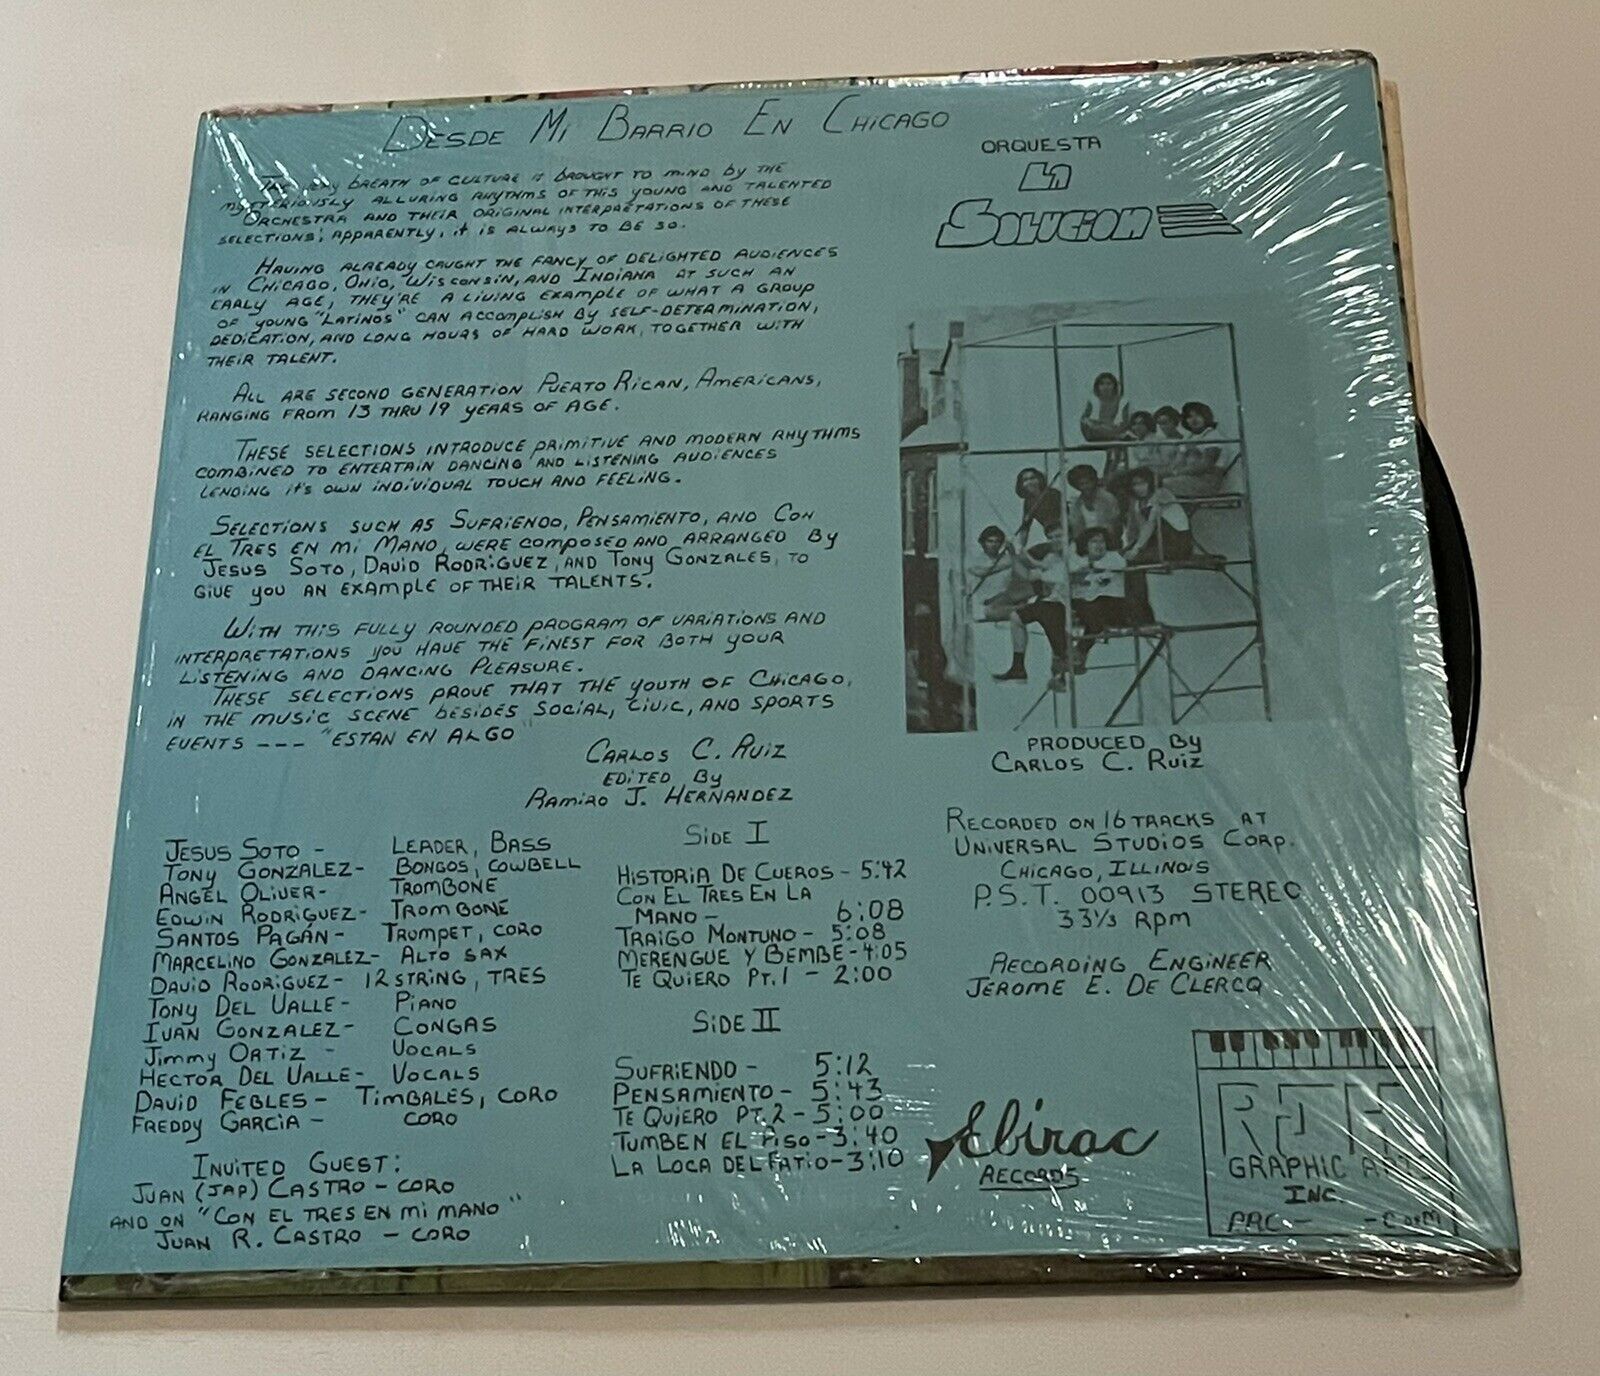 DESDE MI BARRIO EN CHICAGO
THE VERY BREATH OF CULTURE IS BROUGHT TO MIND BY THE
MYSTERIOUSLY ALLURING RHYTHMS OF THIS YOUNG AND TALENTED
ORCHESTRA AND THEIR ORIGINAL INTERPRETATIONS OF THESE
SELECTIONS; APPARENTLY, IT IS ALWAYS TO BE SO.
HAVING ALREADY CAUGHT THE FANCY OF DELIGHTED AUDIENCES
IN CHICAGO, OHIO, WISCONSIN, AND INDIANA AT SUCH AN
EARLY AGE, THEY'RE A LIVING EXAMPLE OF WHAT A GROUP
OF YOUNG "LATINOS" CAN ACCOMPLISH BY SELF-DETERMINATION,
DEDICATION, AND LONG HOURS OF HARD WORK, TOGETHER WITH
THEIR TALENT.
ALL ARE SECOND GENERATION PUERTO RICAN, AMERICANS,
RANGING FROM 13 THRU 19 YEARS OF AGE.
THESE SELECTIONS INTRODUCE PRIMITIVE AND MODERN RHYTHMS
COMBINED TO ENTERTAIN DANCING AND LISTENING AUDIENCES
LENDING IT'S OWN INDIVIDUAL TOUCH AND FEELING.
SELECTIONS SUCH AS SUFRIENDO, PENSAMIENTO, AND CON
EL TRES EN MI MANO, WERE COMPOSED AND ARRANGED BY
JESUS SOTO, DAVID RODRIGUEZ, AND TONY GONZALES, TO
GIVE YOU AN EXAMPLE OF THEIR TALENTS.
WITH THIS FULLY ROUNDED PROGRAM OF VARIATIONS AND
INTERPRETATIONS YOU HAVE THE FINEST FOR BOTH YOUR
LISTENING AND DANCING PLEASURE.
THESE SELECTIONS PROVE THAT THE YOUTH OF CHICAGO,
IN THE MUSIC SCENE BESIDES SOCIAL, CIVIC, AND SPORTS
EVENTS --- "ESTAN EN ALGO"
CARLOS C. RUIZ
EDITED BY
RAMIRO J. HERNANDEZ
JESUS SOTO - LEADER, BASS
TONY GONZALEZ- BONGOS, COWBELL
ANGEL OLIVER- TROMBONE
EDWIN RODRIGUEZ- TROMBONE
SANTOS PAGÁN- TRUMPET, CORO
MARCELINO GONZALEZ- ALTO SAX
DAVID RODRIGUEZ- 12 STRING, TRES
TONY DEL VALLE- PIANO
IVAN GONZALEZ- CONGAS
JIMMY ORTIZ - VOCALS
HECTOR DEL VALLE- VOCALS
DAVID FEBLES- TIMBALES, CORO
FREDDY GARCIA - CORO
INVITED GUEST:
JUAN (JAP) CASTRO - CORO
AND ON "CON EL TRES EN MI MANO"
JUAN R. CASTRO - CORO
SIDE I
HISTORIA DE CUEROS - 5:42
CON EL TRES EN LA
MANO - 6:08
TRAIGO MONTUNO- 5:08
MERENGUE Y BEMBE-4:05
TE QUIERO PT. 1 - 2:00
SIDE II
SUFRIENDO - 5:12
PENSAMIENTO- 5:43
TE QUIERO PT.2 - 5:00
TUMBEN EL PISO-3:40
LA LOCA DEL FATIO-3:10
ORQUESTA
LA
SOLUCION
PRODUCED BY
CARLOS C. RUIZ
RECORDED ON 16 TRACKS AT
UNIVERSAL STUDIOS CORP.
CHICAGO, ILLINOIS
P.S.T. 00913 STEREO
33⅓ RPM
RECORDING ENGINEER
JEROME E. DE CLERCQ
Ebirac
RECORDS
GRAPHIC ARTS
INC.